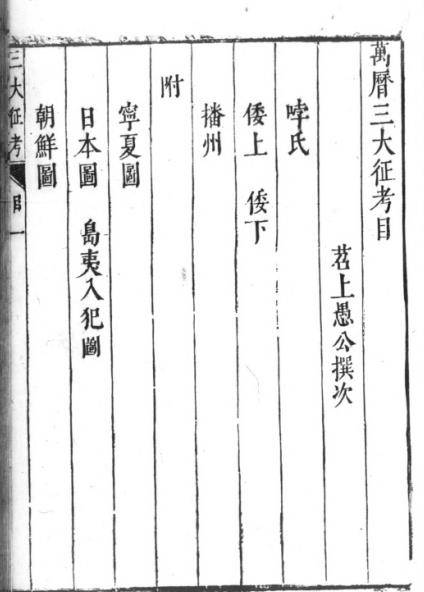 萬曆三大征考目
苕上愚公撰次
哱氏
倭上 倭下
播州
附
寧夏圖
日本圖 島夷入犯圖
朝鮮圖
三大征考 目 一